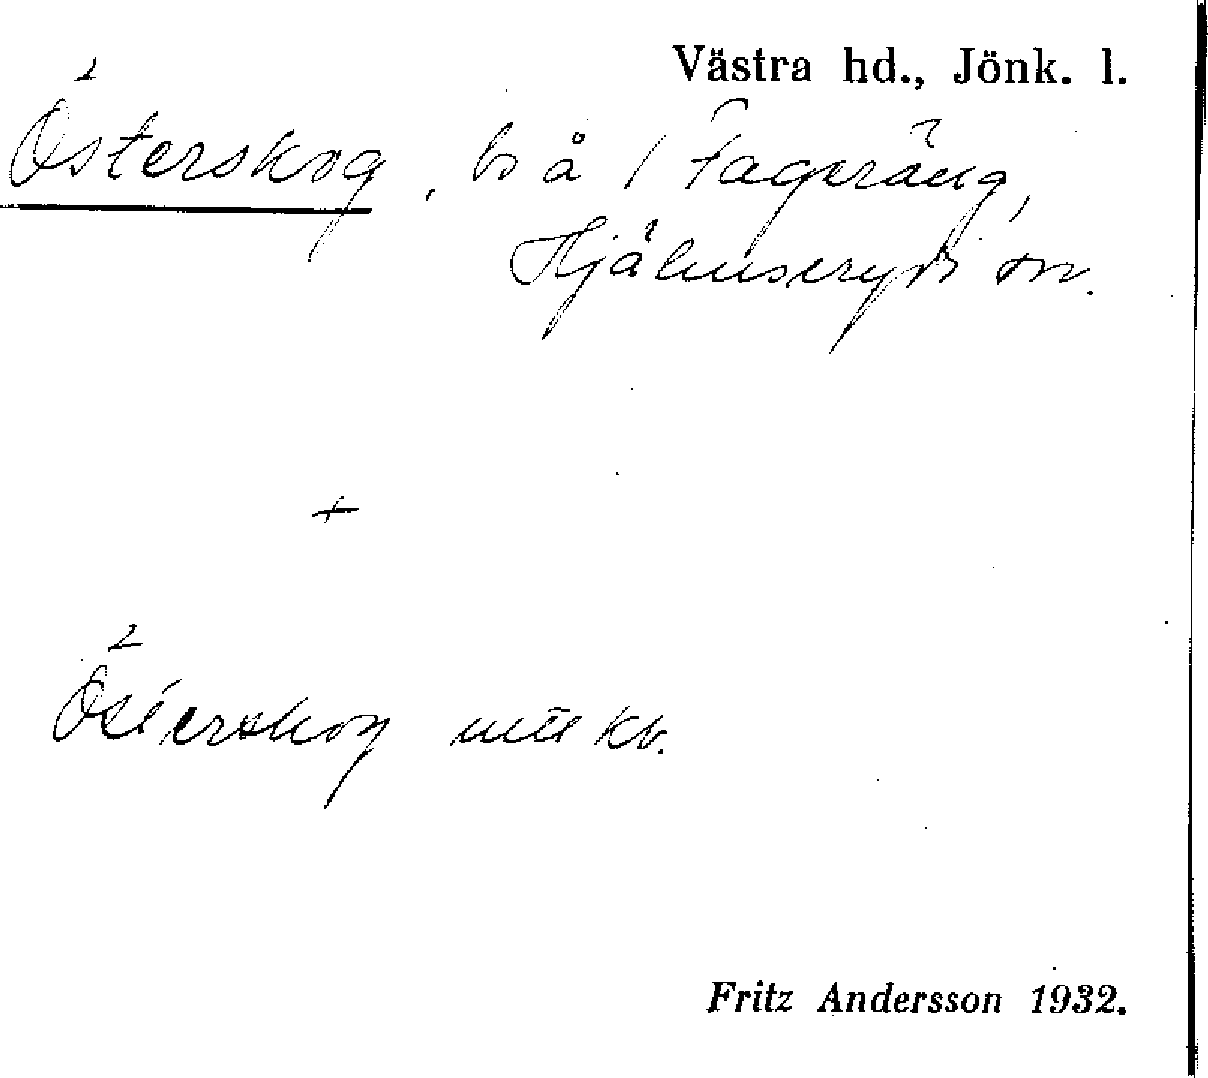 Västra hd., Jönk. l.
Österskog, bs å / Fageräng,
Hjälmseryds sn.
+
Österskog utt kv.
Fritz Andersson 1932.